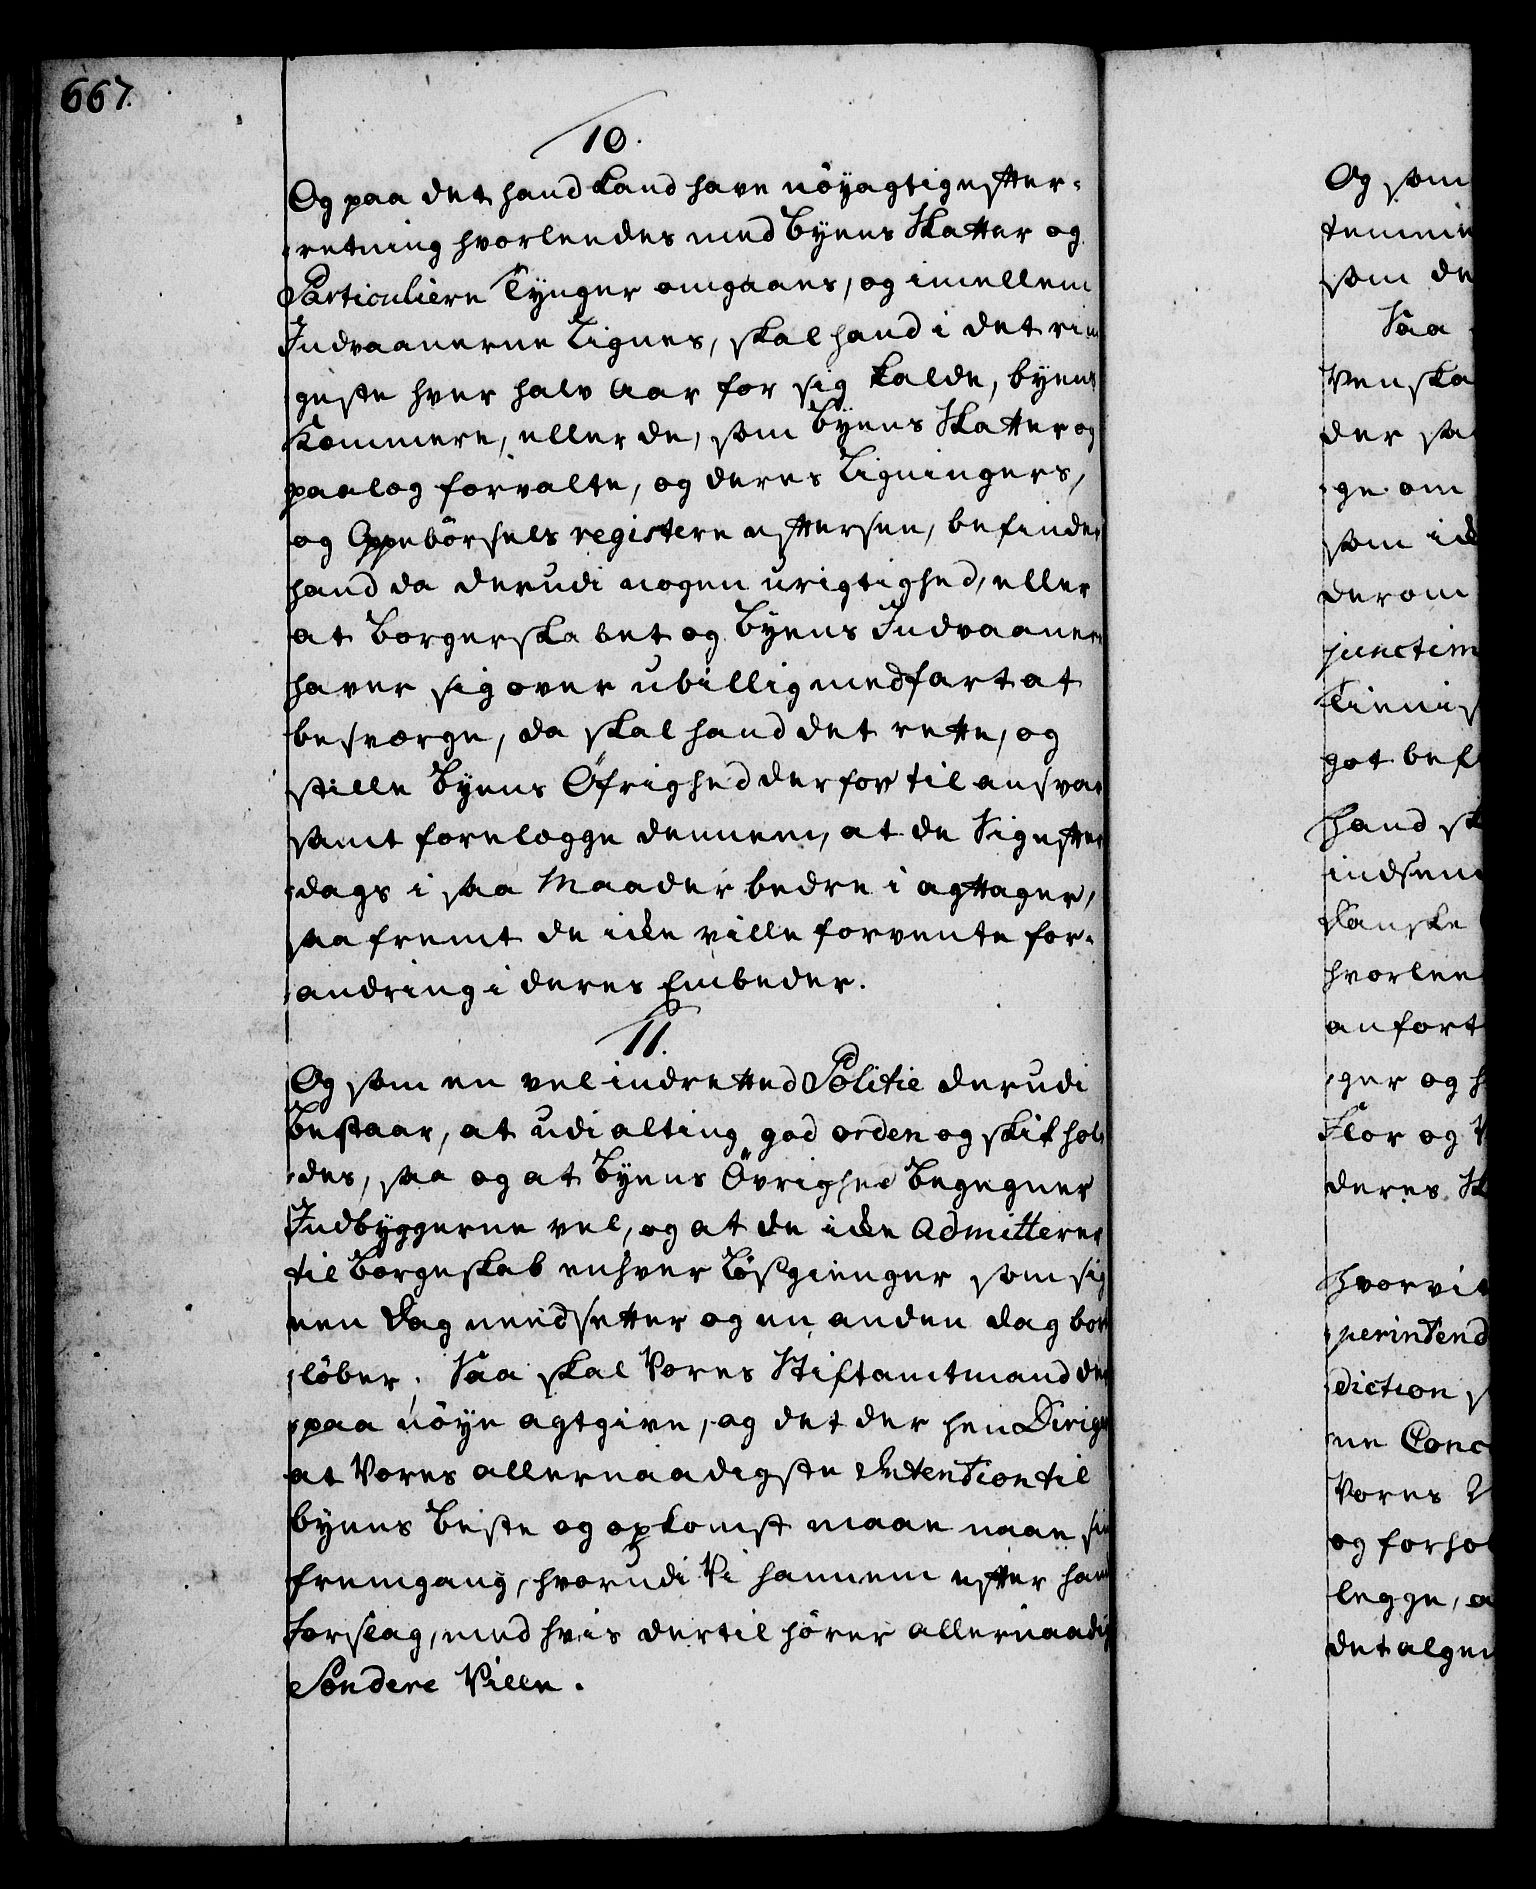 667.
10.
Og paa det hand kand have nöyagtig efter-
retning hvorleedes med Byens Skatter og
Particuliere Tynger omgaaes, og imellem
Indvaanerne Lignes, skal hand i det rin
geste hver halv Aar for sig kalde, byens
Kemmere, eller de, som Byens Skatter og
paaleg forvalte, og deres Ligningers,
og Oppebörsels registere eftersee, befinder
hand da derudi nogen urigtighed, eller
at Borgerskabet og Byens Indvaanere
haver sig over ubillig medfart at
besværge, da skal hand det rette, og
stille Byens Öfrighed derfor til ansvar
samt forelegge dennem, at de Sig efter
dags i saa Maader bedre i agttager,
saa fremt de icke ville forvente for-
andring i deres Embeder.
11.
Og som en vel indretted Politie derudi
Bestaar, at udi alting god orden og skik hol
des, saa og at Byens Övrighed Begegner
Indbyggerne vel, og at de icke Admitterer
til Borgeskab enhver Lösgienger som sig
een Dag needsetter og en anden dag bort
löber. Saa skal Vores Stiftamtmand der
paa nöye agtgive, og det der hen Dirige
at Vores allernaadigste Intention til
byens Beste og opkomst maae naae sin
fremgang, hvorudi Vi hannem efter hans
Forslag, med hvis dertil hörer allernaadig
Secondere Ville.
Og som
temme
som de
Saa
Venska
der sa
ge om
som ick
derom
junctim
Tienis
got bef
Hand sk
indsen
Danske
hvorlee
anfort
ger og h
Flor og V
deres Sk
hvorvit
perintend
diction s
ne Conc
Vores
og forhol
legge, a
det algen